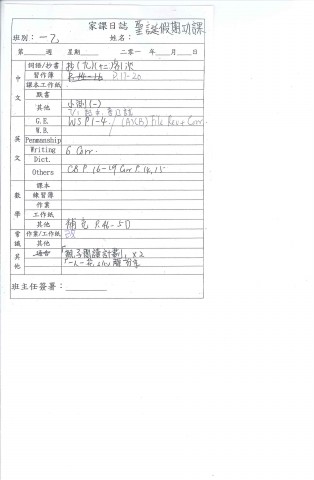 家課日誌 聖誕假期功課
班別：一乙 姓名：
第 週 星期 二零一 年 月 日
中文
詞語/抄書
習作簿 P.14-16 P.17-20
課本工作紙
默書
其他 小測(一)
英文
G.E. WS P1-4 / (A)(B) file Rev + Corr.
W.B.
Penmanship
Writing 6 Corr.
Dict.
Others CB P.16-19 Corr P.14,15
數學
課本
練習簿
作業
工作紙
其他 補充 P.46-50
常識
作業/工作紙
其他
其他
通告 「親子閱讀計劃」x2
「一人一花」
班主任簽署：